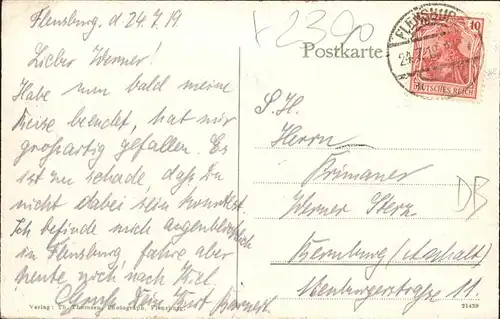 Flensburg, d. 24.7.19.
Lieber Werner!
Habe nun bald meine
Reise beendet, hat mir
großartig gefallen. Es
ist zu schade, daß Du
nicht dabei sein konntest.
Ich befinde mich augenblicklich
in Flensburg, fahre aber
heute noch nach Kiel.
Gruß Dein Kurt
Verlag: Th. Thomsen, Photograph, Flensburg.
+2390
Postkarte
FLENSBURG
24.7.19
10
DEUTSCHES REICH
S. H.
Herrn
Primaner
Werner Stern
Bernburg (Anhalt)
11.
DB